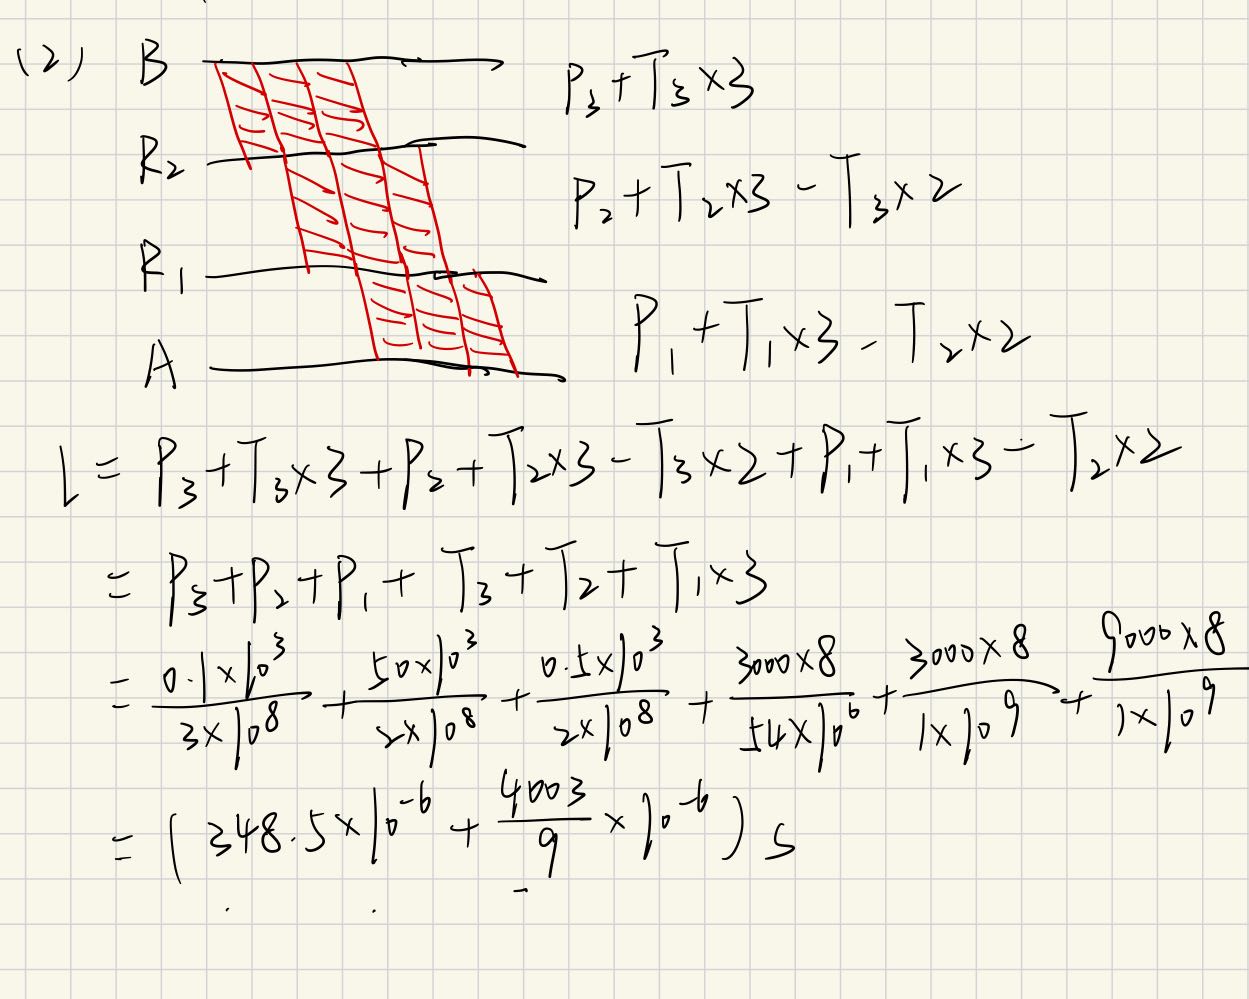 (2) B P₃+T₃×3
R₂ P₂+T₂×3-T₃×2
R₁ P₁+T₁×3-T₂×2
A
L = P₃+T₃×3+P₂+T₂×3-T₃×2+P₁+T₁×3-T₂×2
= P₃+P₂+P₁+T₃+T₂+T₁×3
= 0.1×10³/3×10⁸ + 50×10³/2×10⁸ + 0.5×10³/2×10⁸ + 3000×8/54×10⁶ + 3000×8/1×10⁹ + 9000×8/1×10⁹
= (348.5×10⁻⁶ + 4003/9 × 10⁻⁶) s